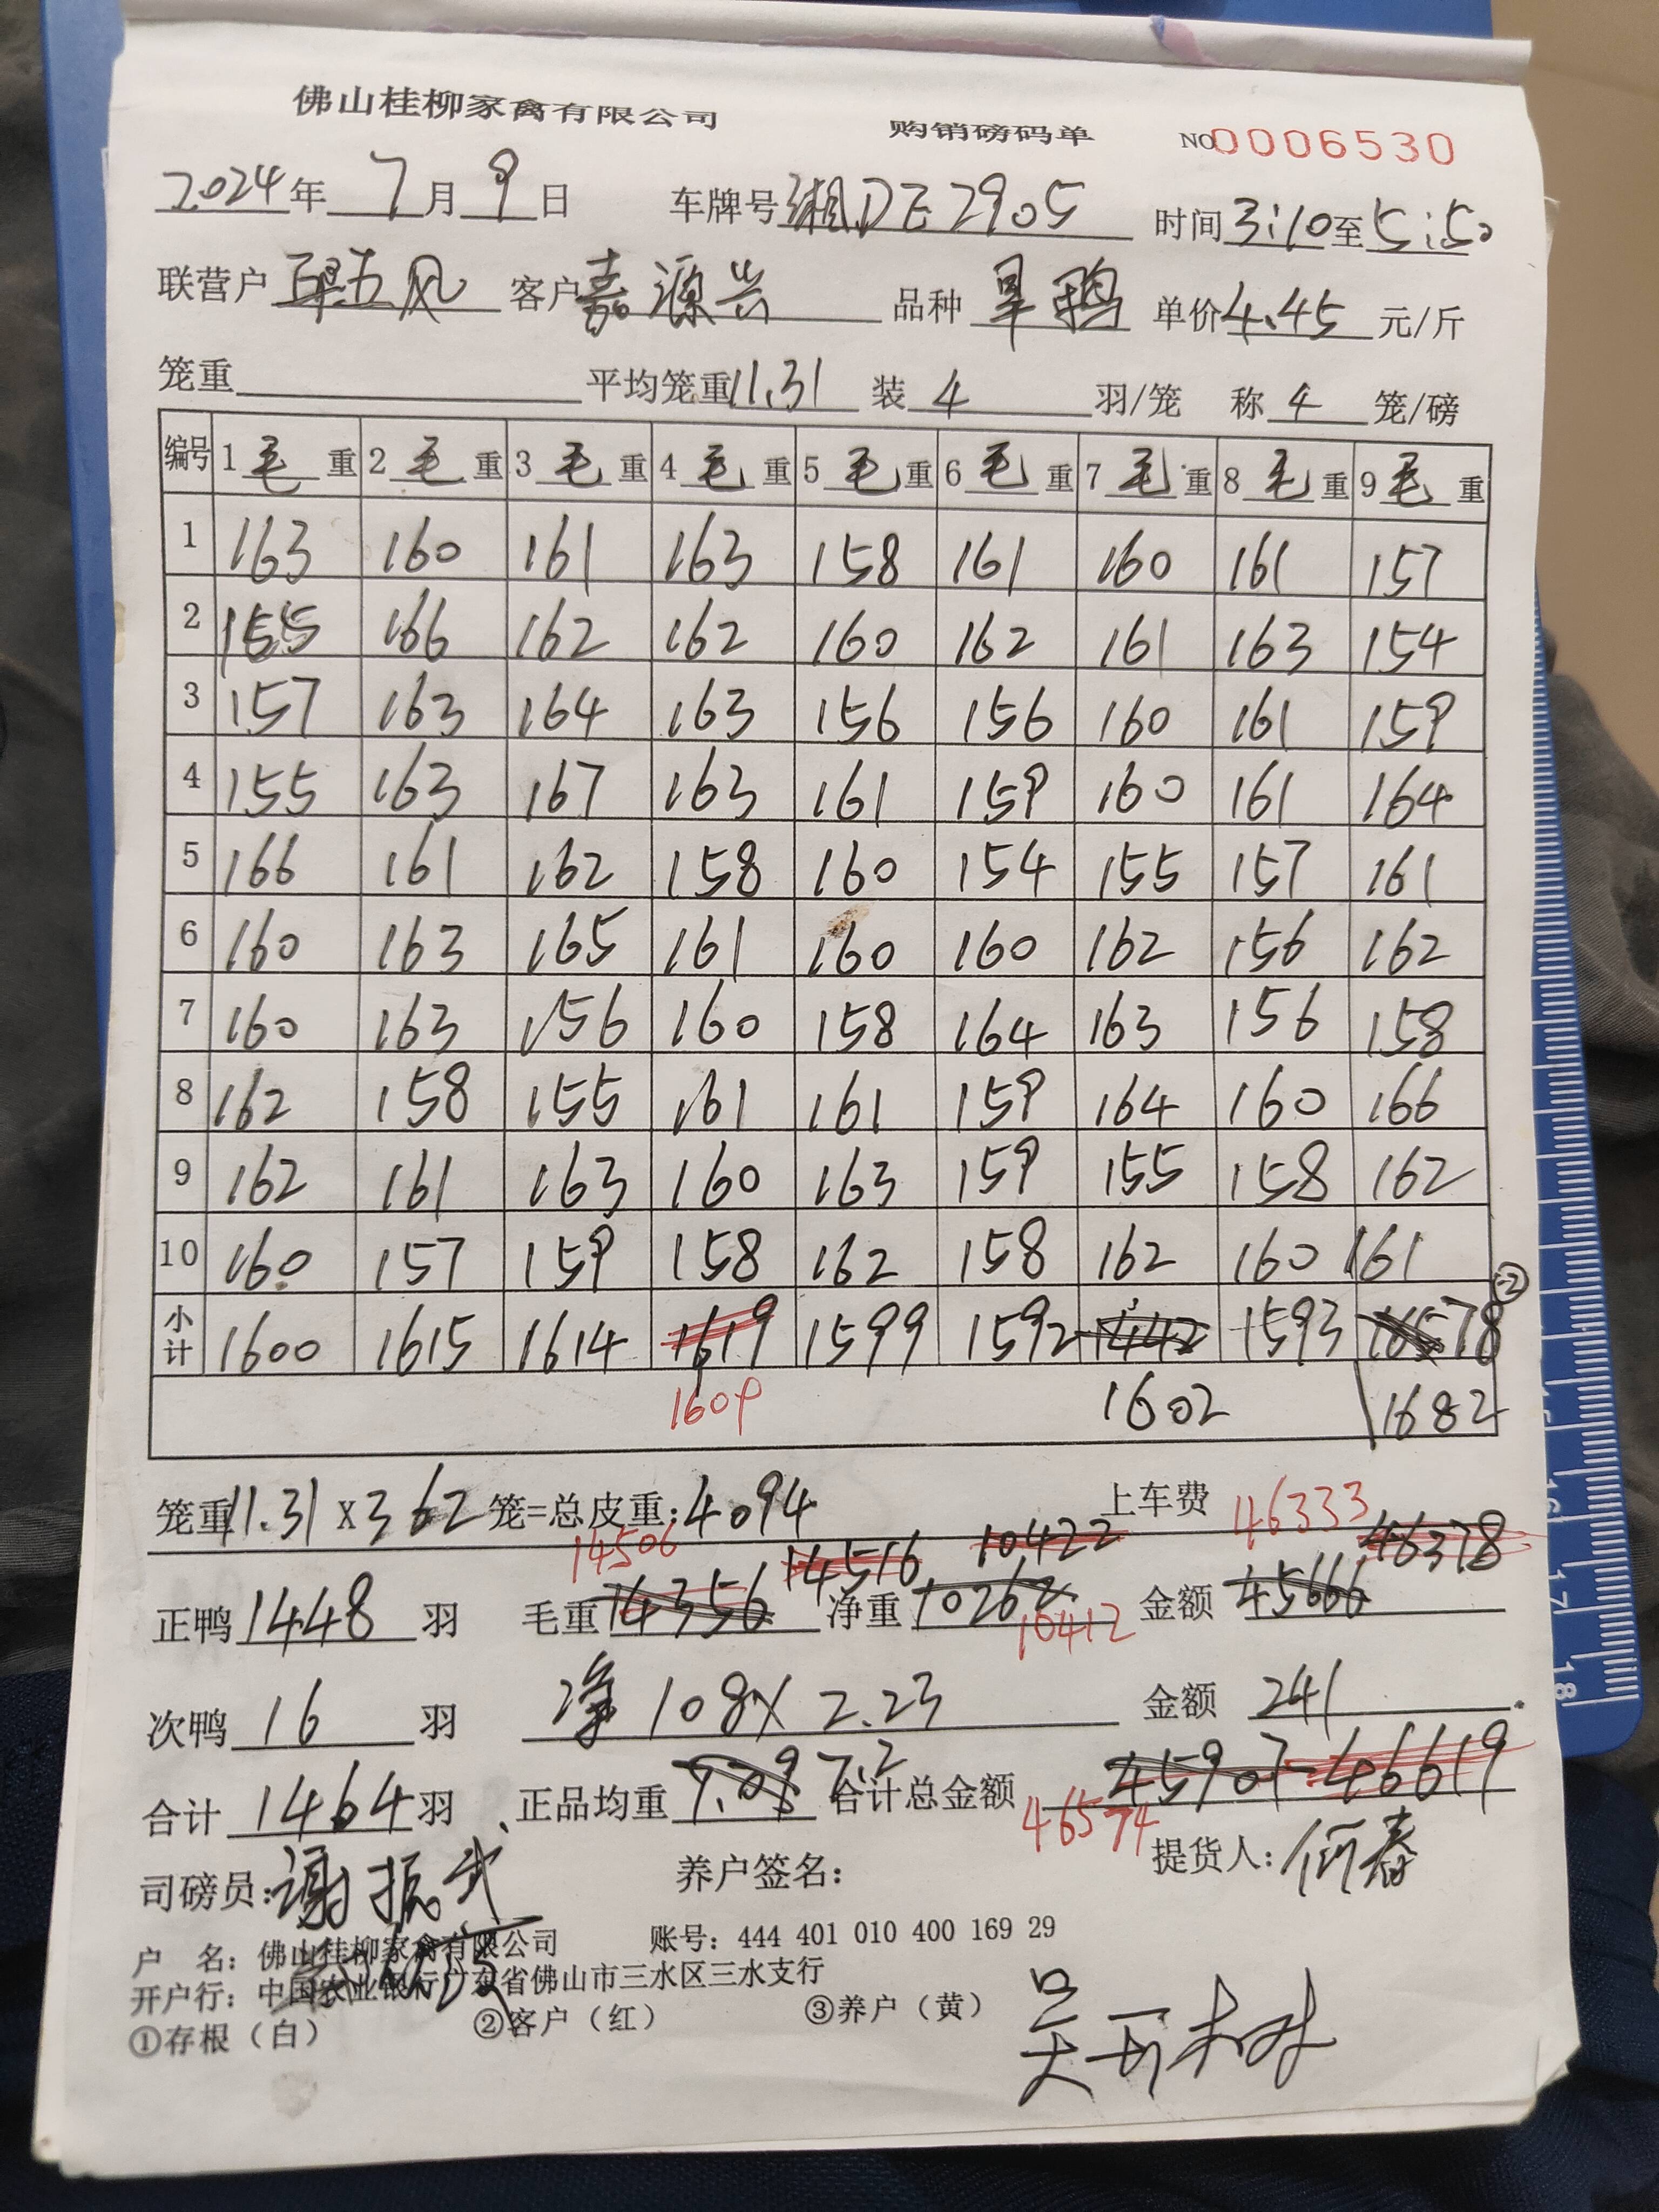 佛山桂柳家禽有限公司 购销磅码单 NO0006530
2024年 7月 9日 车牌号 湘DE2905 时间 3:10至5:50
联营户 五风 客户 嘉源兴 品种 旱鸭 单价 4.45 元/斤
笼重 平均笼重 11.31 装 4 羽/笼 称 4 笼/磅
编号 1毛重 2毛重 3毛重 4毛重 5毛重 6毛重 7毛重 8毛重 9毛重
1 163 160 161 163 158 161 160 161 157
2 155 166 162 162 160 162 161 163 154
3 157 163 164 163 156 156 160 161 159
4 155 163 167 163 161 159 160 161 164
5 166 161 162 158 160 154 155 157 161
6 160 163 165 161 160 160 162 156 162
7 160 163 156 160 158 164 163 156 158
8 162 158 155 161 161 159 164 160 166
9 162 161 163 160 163 159 155 158 162
10 160 157 159 158 162 158 162 160 161
小计 1600 1615 1614 1619 1599 1592 1442 1593 78 ②
1609 1602 1682
笼重 11.31 X 362 笼=总皮重: 4094 上车费 46333
14506 14516 10422 46378
正鸭 1448 羽 毛重 14356 净重 10262 10412 金额 45666
次鸭 16 羽 净 108X2.23 金额 241
合计 1464 羽 正品均重 7.09 7.2 合计总金额 45907 46619
46574
司磅员: 谢振武 养户签名: 提货人: 何春
户 名: 佛山桂柳家禽有限公司 账号: 444 401 010 400 169 29
开户行: 中国农业银行广东省佛山市三水区三水支行
①存根（白） ②客户（红） ③养户（黄）